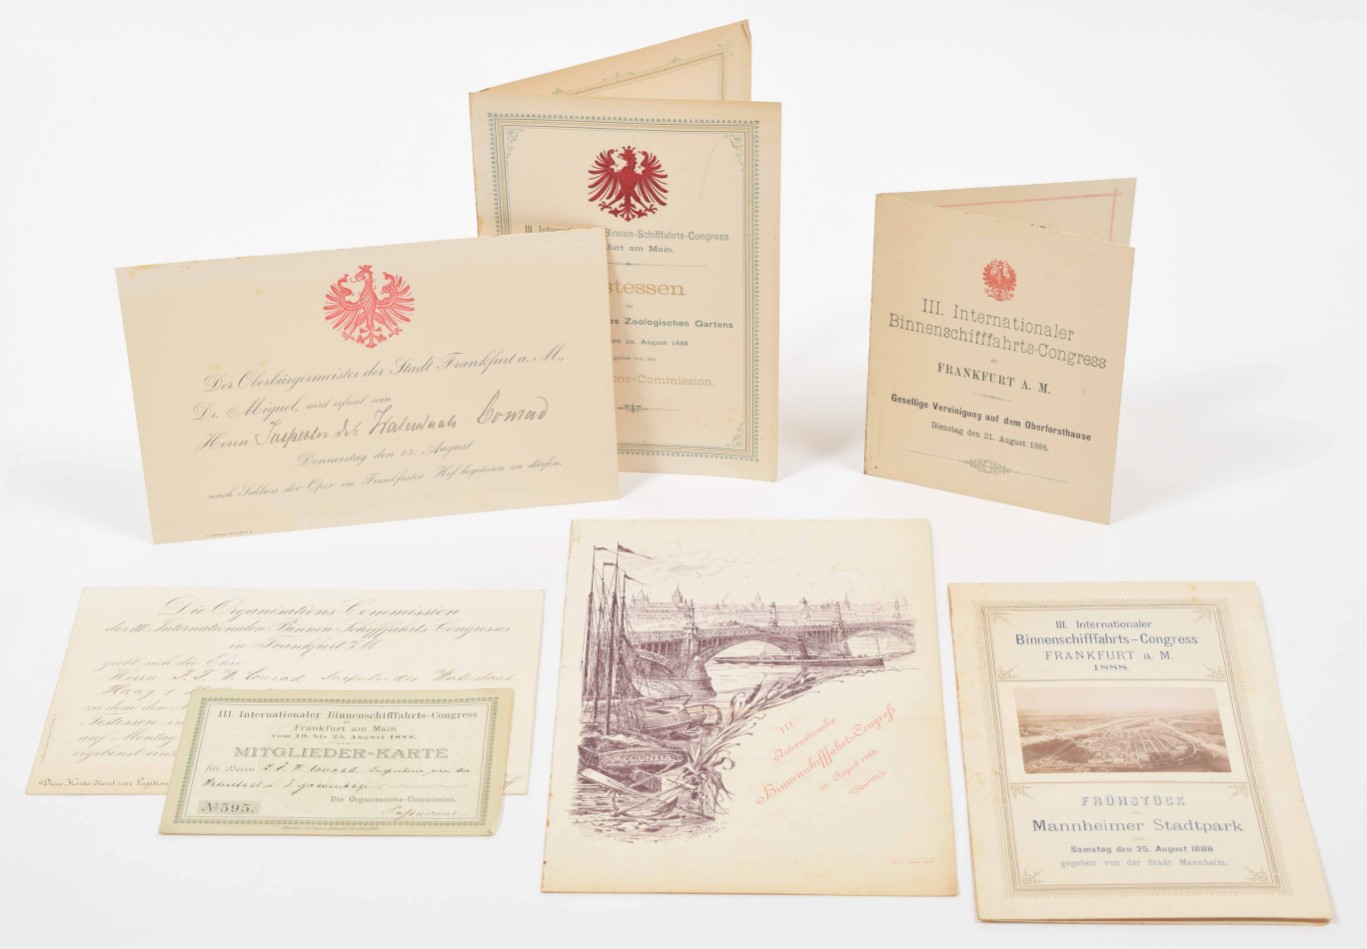 III. Internatio Binnen-Schifffahrts-Congress
furt am Main.
stessen
im
es Zoologischen Gartens
en 22. August 1888
geben von der
ons-Commission.
Der Oberbürgermeister der Stadt Frankfurt a. M.,
Dr. Miquel, wird erfreut sein
Herrn Inspector des Waterstaats Conrad
Donnerstag den 23. August
nach Schluss der Oper im Frankfurter Hof begrüssen zu dürfen.
III. Internationaler
Binnenschifffahrts-Congress
zu
FRANKFURT A. M.
Gesellige Vereinigung auf dem Oberforsthause
Dienstag den 21. August 1888.
Die Organisations-Commission
des III. Internationalen Binnen-Schifffahrts-Congresses
in Frankfurt a/M.
giebt sich die Ehre
Herrn J. F. W. Conrad, Inspector des Waterstaat
Haag
zu dem den
Festessen in
auf Montag
ergebenst einz
Diese Karte dient zur Legitim
III. Internationaler Binnenschifffahrts-Congress
zu
Frankfurt am Main
vom 19. bis 25. August 1888.
MITGLIEDER-KARTE
für Herrn J. F. W. Conrad,
No 595.
Die Organisations-Commission.
III.
Internationaler
Binnenschifffahrts-Congress
August 1888.
III. Internationaler
Binnenschifffahrts-Congress
FRANKFURT a. M.
1888.
FRÜHSTÜCK
im
Mannheimer Stadtpark
Samstag den 25. August 1888
gegeben von der Stadt Mannheim.